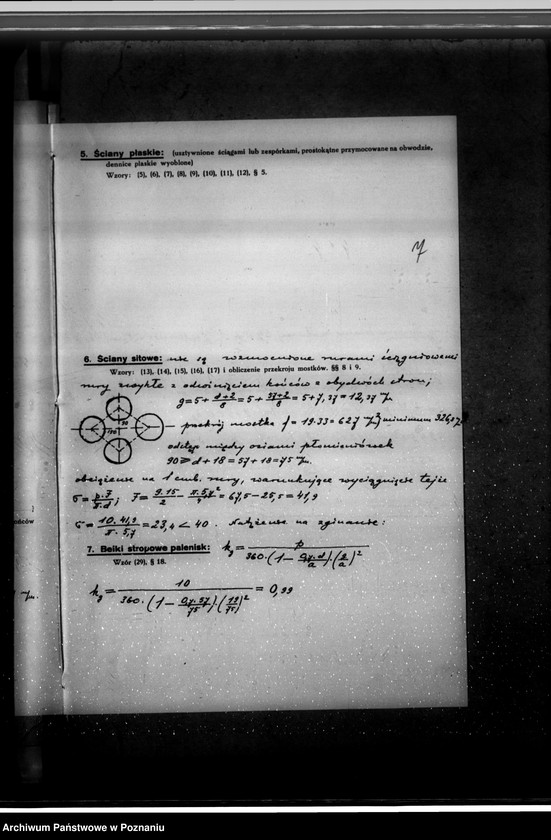 5. Ściany płaskie: (usztywnione ściągami lub zespórkami, prostokątne przymocowane na obwodzie,
dennice płaskie wyoblone)
Wzory: (5), (6), (7), (8), (9), (10), (11), (12), § 5.
7
6. Ściany sitowe: nie są wzmocnione rurami ściągniowemi
Wzory: (13), (14), (15), (16), (17) i obliczenie przekroju mostków. §§ 8 i 9.
rury zwykłe z odwinięciem końców z obydwóch stron;
g = 5 + (d+2)/8 = 5 + (57+2)/8 = 5 + 7,37 = 12,37
przekrój mostka f = 19.33 = 627 minimum
odstęp między osiami płomieniówek
90 ≥ d + 18 = 57 + 18 = 75
obciążenie na 1 cmb. rury, warunkujące wyciągnięcie tejże
σ = p.F/π.d; F = 9.15/2 − π.5,7²/4 = 67,5 − 25,5 = 41,9
σ = 10.41,9/π.5,7 = 23,4 < 40. Natężenie na zginanie:
7. Belki stropowe palenisk: kg = p/360.(1 − 0,7.d/a).(g/a)²
Wzór (29), § 18.
kg = 10/360.(1 − 0,7.57/75).(19/75)² = 0,99
Archiwum Państwowe w Poznaniu